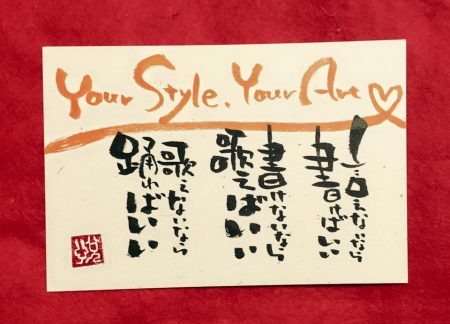 Your Style. Your Art
言えないなら
書けばいい
書けないなら
歌えばいい
歌えないなら
踊ればいい